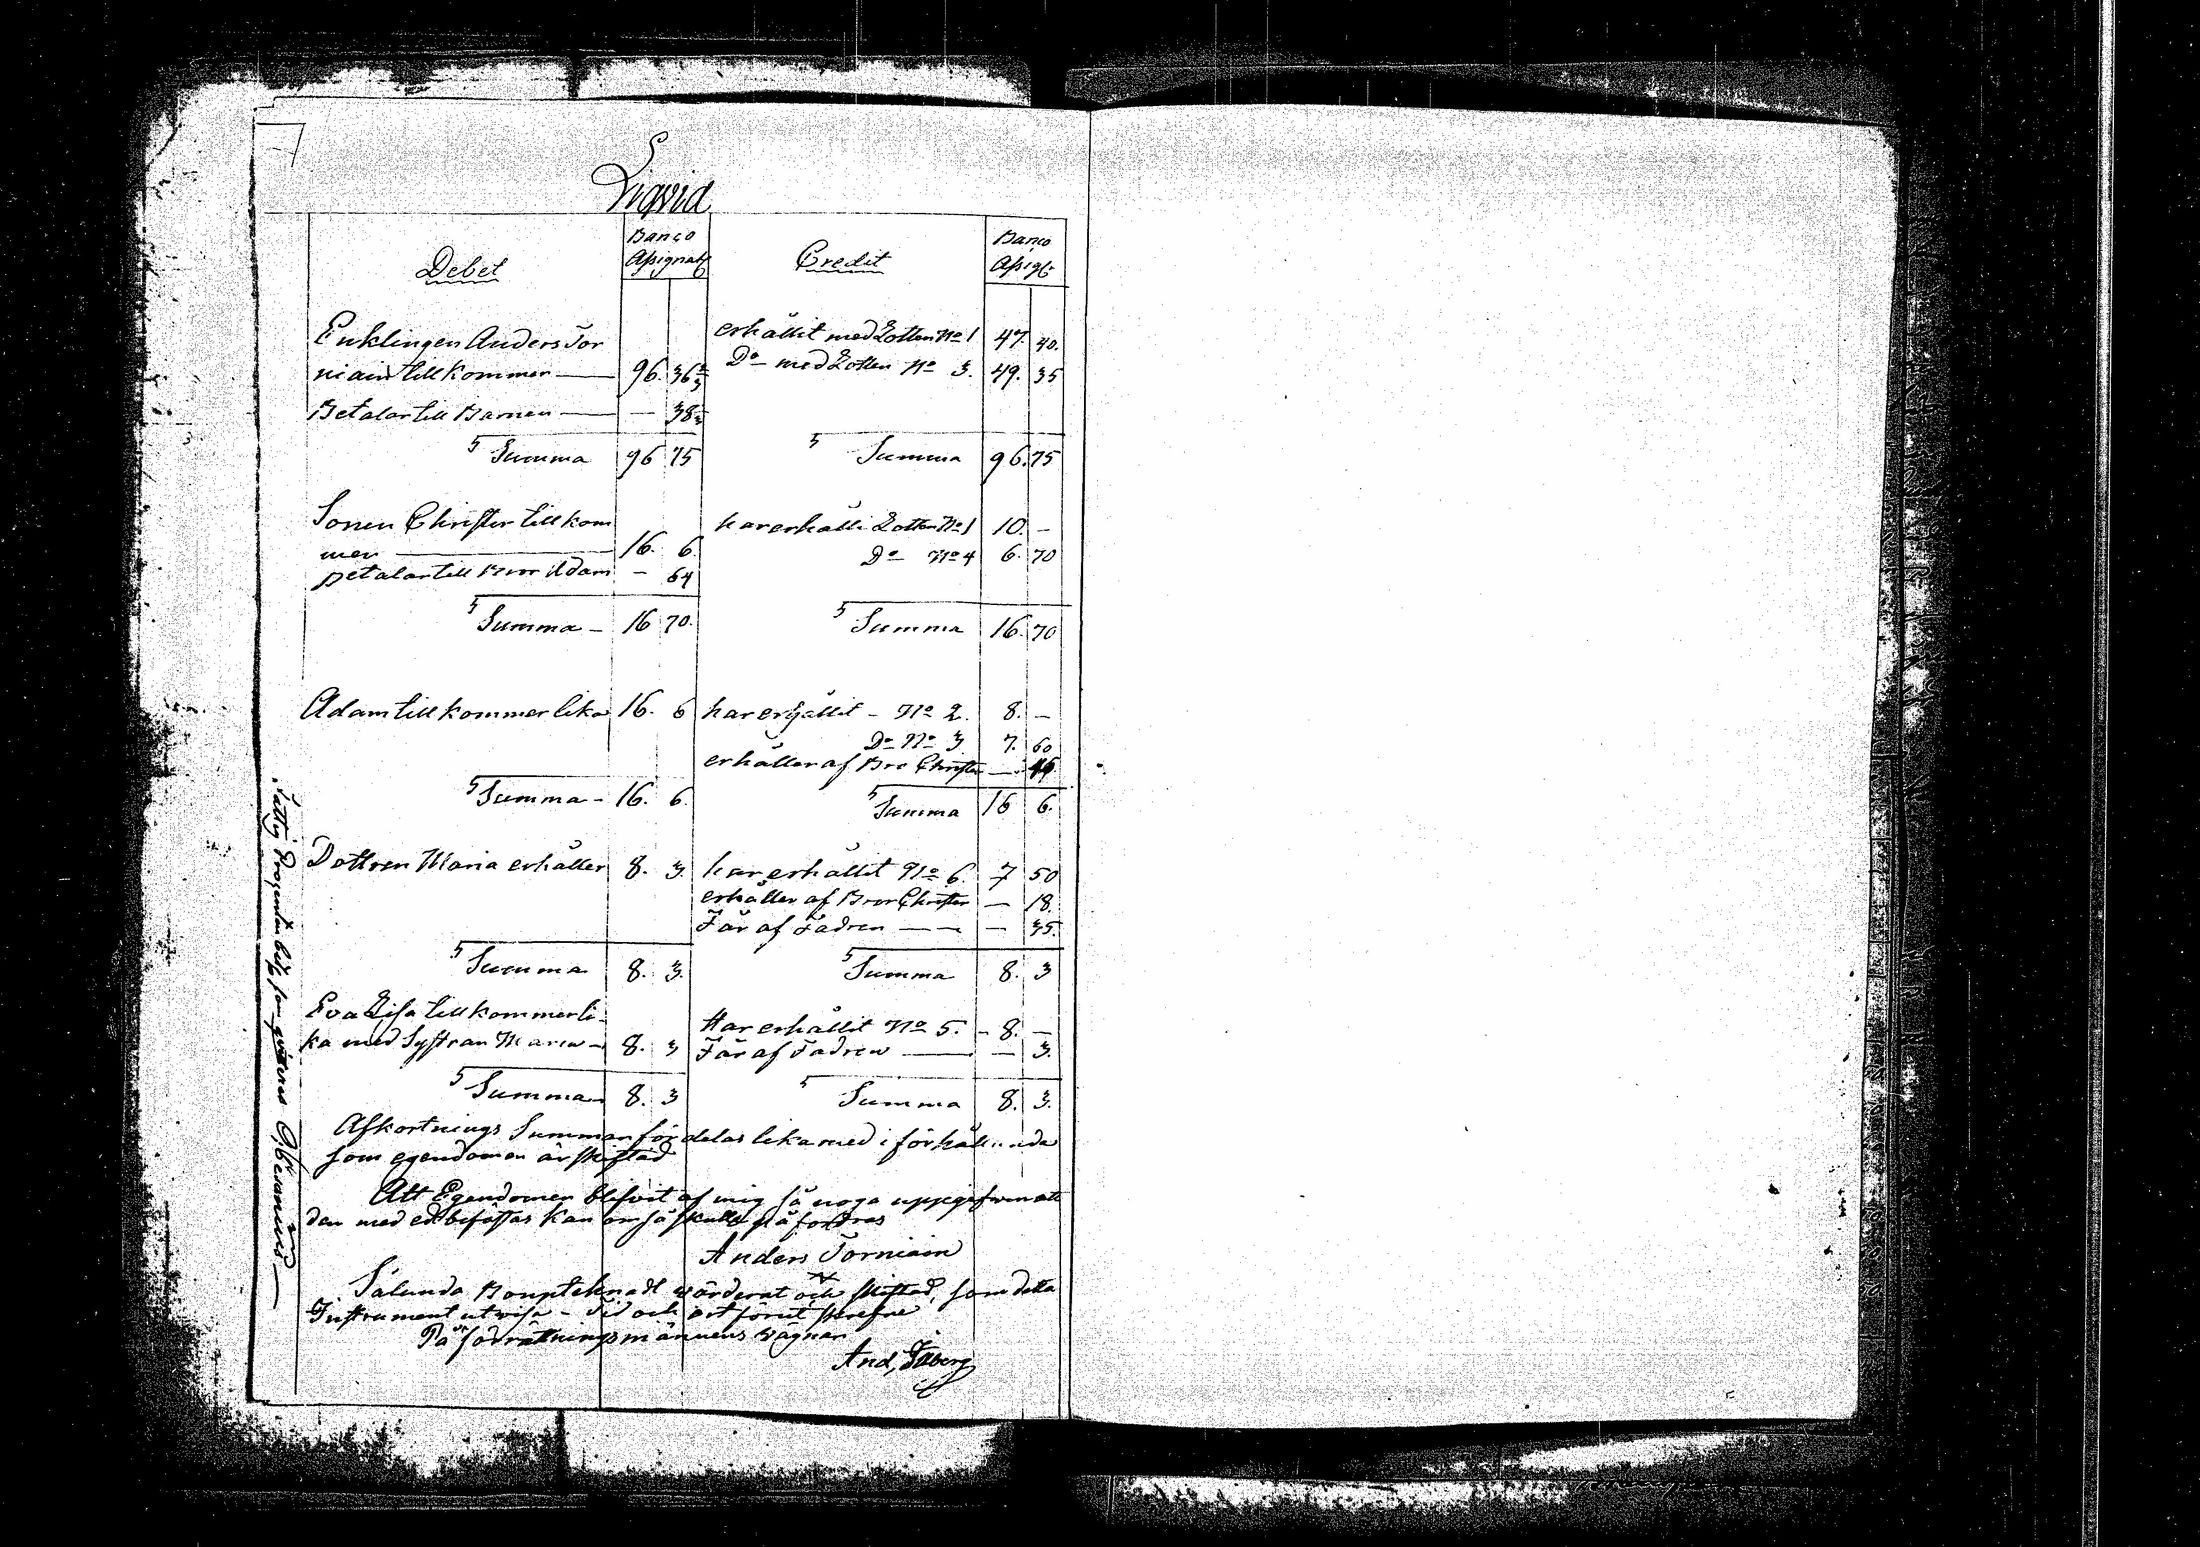 Liqvid
Debet Banco Assignats Credit Banco Assigts
Enklingen Anders Tor erhållit med Lotten No 1 47. 40.
niain tillkommer — 96. 36 2/3 Do med Lotten No 3. 49. 35
Betalar till Barnen — — 38 1/3
Summa 96 75 Summa 96. 75
Sonen Christer tillkom har erhålli Lotten No 1 10. –
mer — 16. 6. Do No 4 6. 70
betalar till Bror Adam – 64
Summa – 16 70. Summa 16. 70
Adam tillkommer lika 16. 6 har erhållit – No 2. 8. –
Do No 3 7. 60
erhåller af Bro Christer —
Summa – 16. 6. Summa 16 6.
Dottren Maria erhåller 8. 3. har erhållit No 6. 7 50
erhåller af Bror Christer — 18.
Får af Fadren — — 35.
Summa 8. 3. Summa 8. 3
Eva Lisa tillkommer li-
ka med Systran Maria – 8. 3 Har erhållit No 5. – 8. —
Får af Fadren — — 3.
Summa 8. 3 Summa 8. 3.
Afkortnings Summan fördelas lika med i förhållande
som egendomen är skiftad
Att Egendomen blifvit af mig så noga uppgifwen att
den med ed befästas kan om så skulle påfordras
Anders Torniain
Sålunda Boupteknadt wärderat och skiftad, som detta
Instrument utwisa – Tid och ort förut skrefne
På förrättningsmännens wägnar
And,
Fattig Procenten